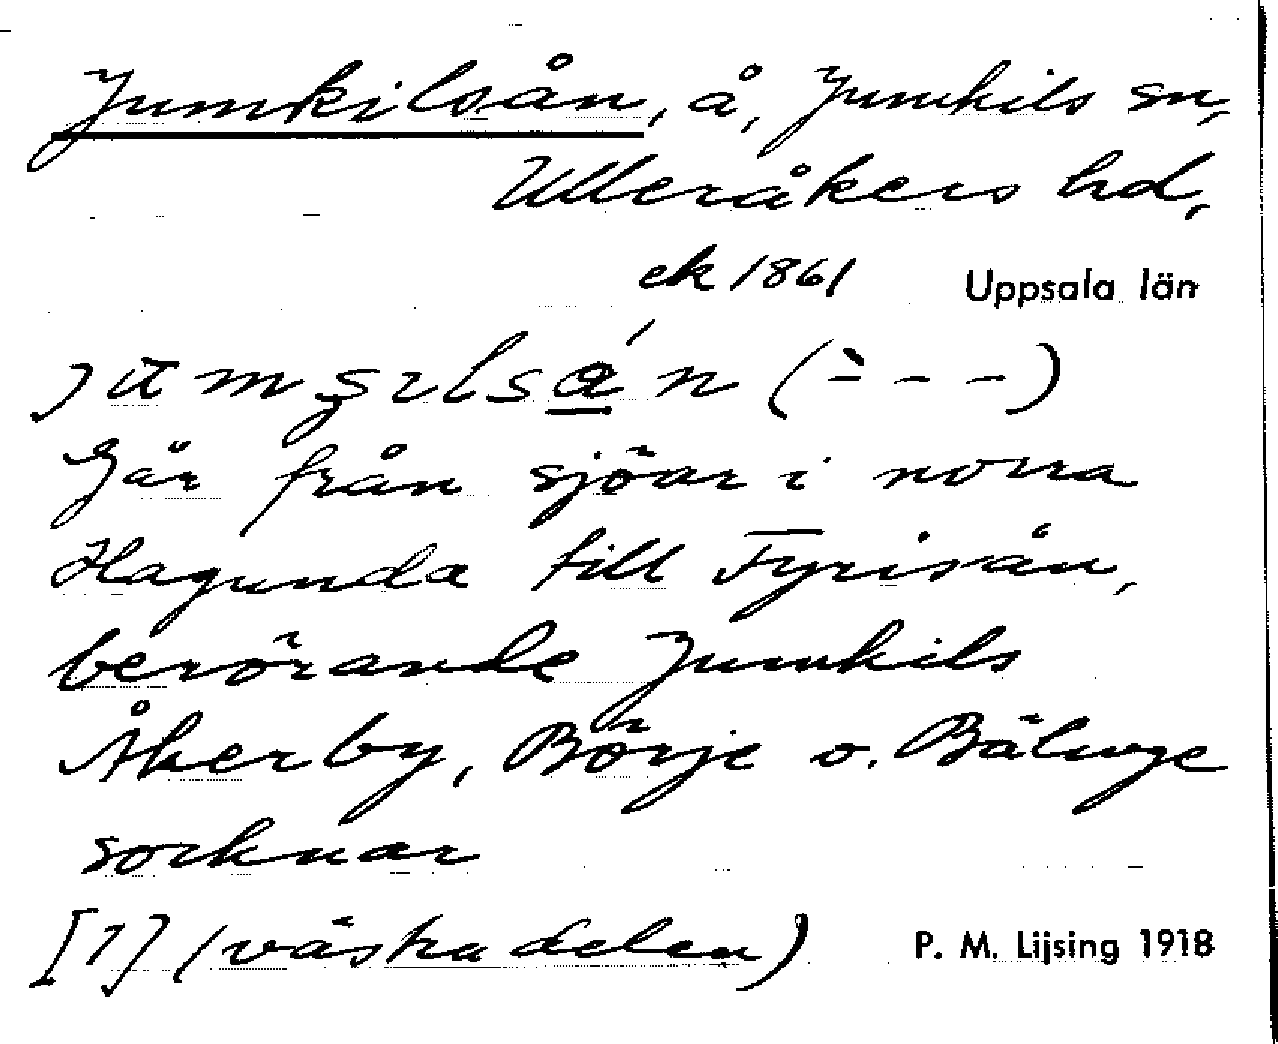 Jumkilsån, å, Jumkils sn,
Ulleråkers hd,
ek 1861 Uppsala län
Går från sjöar i norra
Hagunda till Fyrisån,
berörande Jumkils
Åkerby, Börje o. Bälinge
socknar
[1] (västra delen) P. M. Lijsing 1918